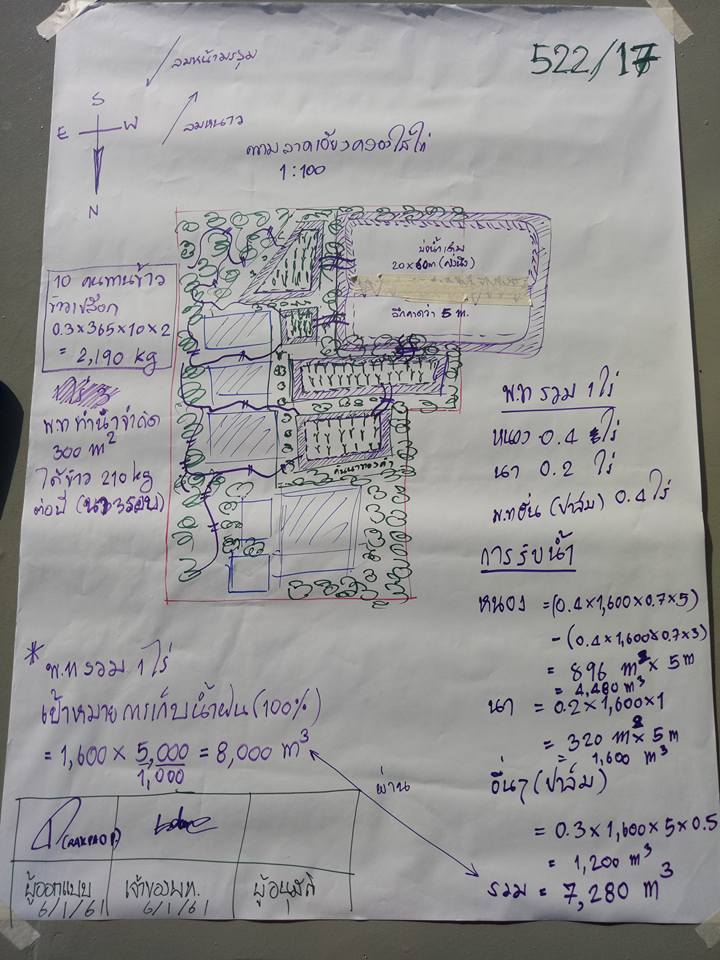 522/17
ลมหน้ามรสุม
ลมหนาว
S
E W
N
ตามลาดเอียงคลองไส้ไก่
1:100
บ่อน้ำเดิม
20×60m (ครึ่งนึง)
ลึกกว่า 5 m.
คันนาทองคำ
10 คนทานข้าว
ข้าวเปลือก
0.3×365×10×2
= 2,190 kg
พ.ท ทำนาจำกัด
300 m²
ได้ข้าว 210 kg
ต่อปี (นา 3 รอบ)
พ.ท รวม 1 ไร่
หนอง 0.4 ไร่
นา 0.2 ไร่
พ.ท อื่น (ปาล์ม) 0.4 ไร่
การรับน้ำ
หนอง = (0.4×1,600×0.7×5)
-(0.4×1,600×0.7×3)
= 896 m² × 5m
= 4,480 m³
นา = 0.2×1,600×1
= 320 m² × 5m
= 1,600 m³
อื่นๆ (ปาล์ม)
= 0.3×1,600×5×0.5
= 1,200 m³
รวม = 7,280 m³
* พ.ท รวม 1 ไร่
เป้าหมายการเก็บน้ำฝน (100%)
= 1,600 × 5,000/1,000 = 8,000 m³
ผ่าน
ผู้ออกแบบ
6/1/61
เจ้าของพท.
6/1/61
ผู้อนุมัติ